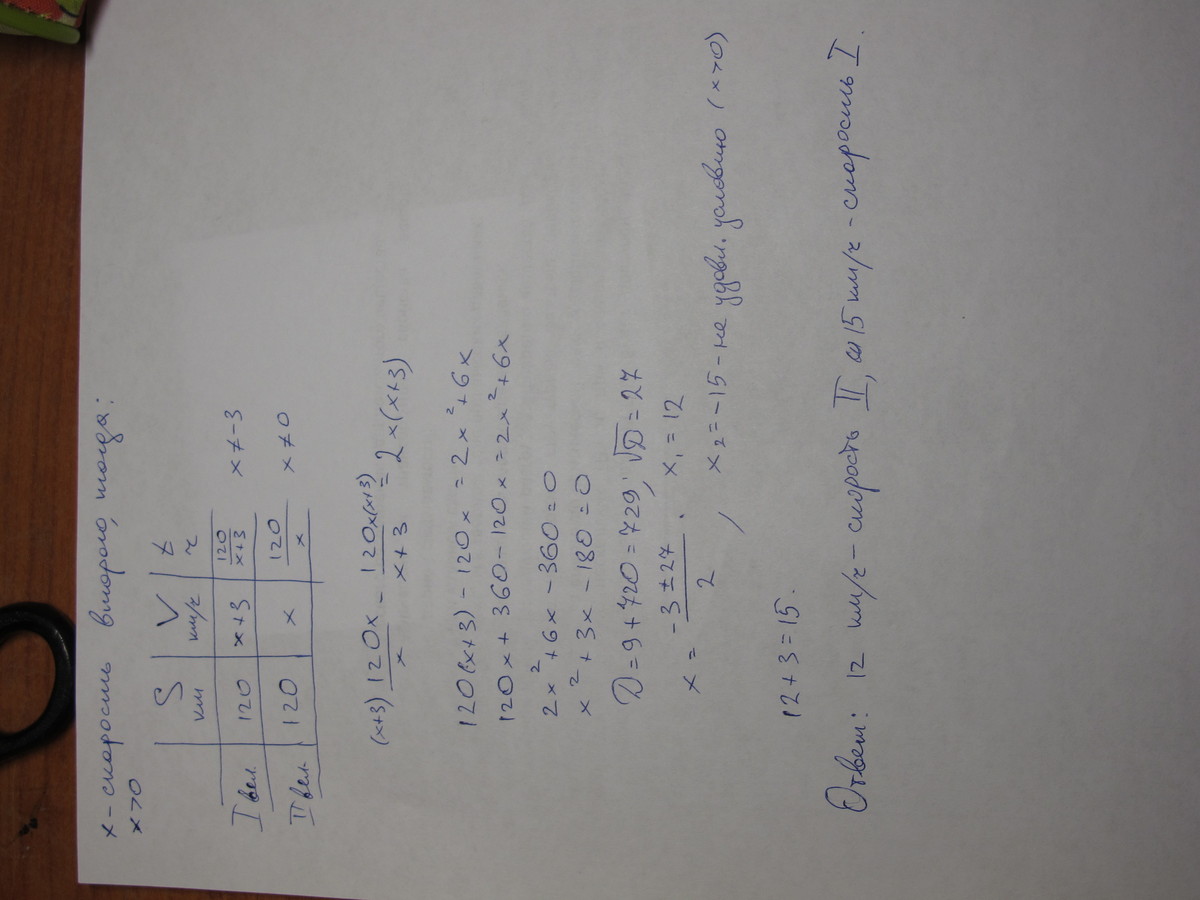 x - скорость второго, тогда:
x>0
S км V км/ч t ч
I вел. 120 x+3 120/(x+3) x≠-3
II вел. 120 x 120/x x≠0
(x+3) 120x/x - 120x(x+3)/(x+3) = 2x(x+3)
120(x+3) - 120x = 2x²+6x
120x+360-120x=2x²+6x
2x²+6x-360=0
x²+3x-180=0
D=9+720=729; √D=27
x= (-3±27)/2 . x₁=12
, x₂=-15 - не удовл. условию (x>0)
12+3=15.
Ответ: 12 км/ч - скорость II, 15 км/ч - скорость I.